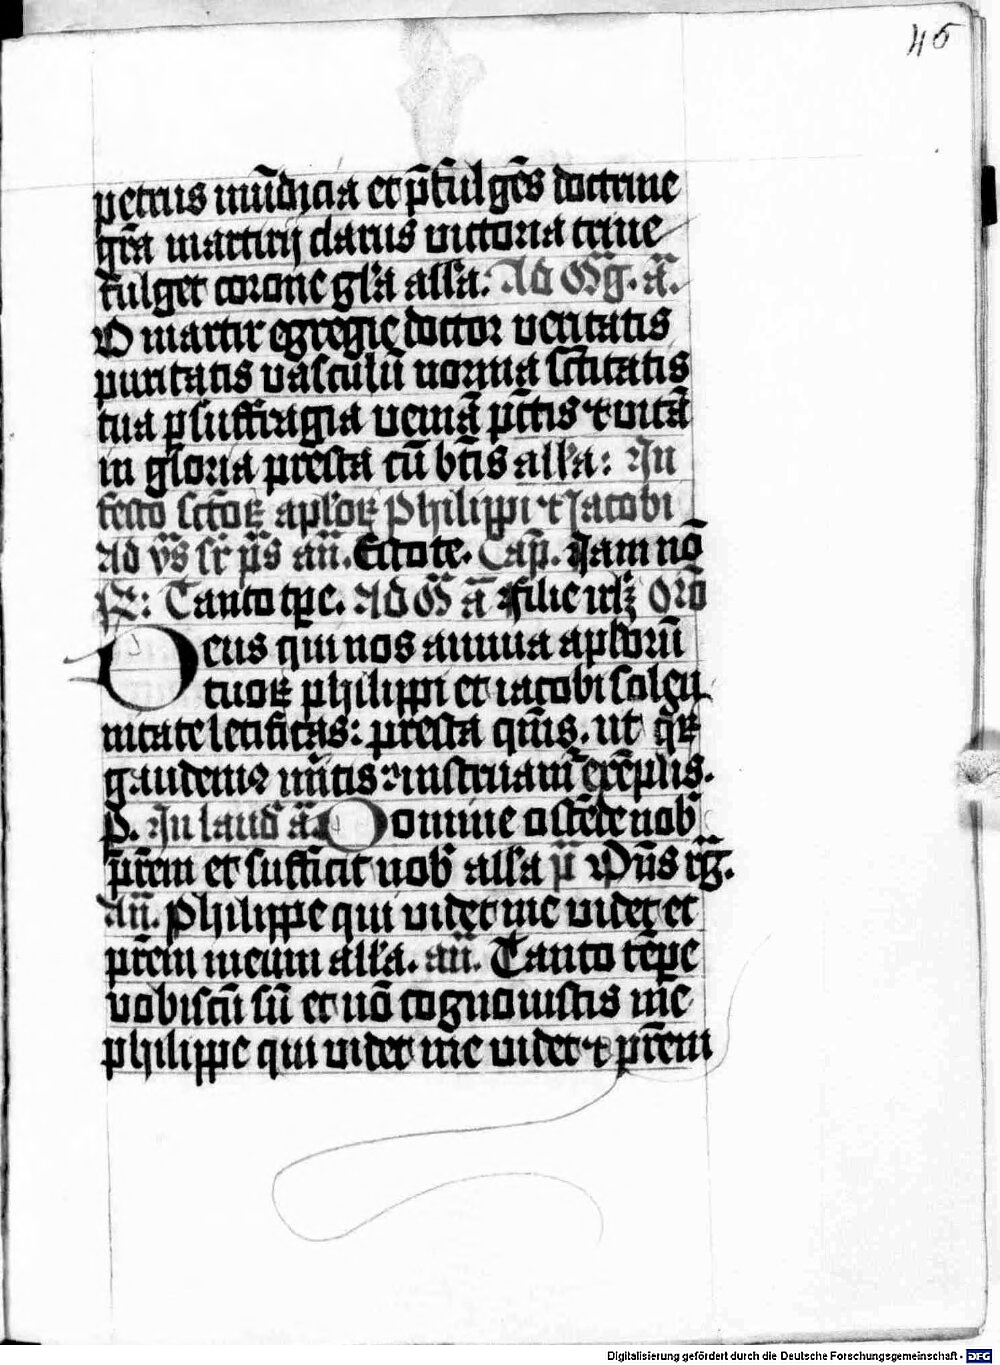 45
petrus mūdicia et p̄fulgēs doctrine
gr̄a martirij clarus uictoria trine
fulget corone gl̓a all̓a. Ad Mg̅. a̅.
O martir egregie doctor ueritatis
puritatis uasculū norma sc̄titatis
tua ꝑ suffragia ueniā pc̄tis ⁊ uitā
in gloria presta cū bt̄is all̓a: In
festo sc̄toꝝ apl̓oꝝ Philippi ⁊ Jacobi
Ad vs̄ sr̄ ps̄ an̄. Estote. Cap̄. Jam nō
R: Tanto tꝑe. Ad M a̅ Filie irl̓m Orō
Deus qui nos annua apl̓orū
tuoꝝ philippi et iacobi solen
nitate letificas: presta qm̄s. ut qꝝ
gaudemꝰ mr̄itis ⁊ instruam̄ exēplis.
P. In laud̓ a̅. Domine ostēde nob̓
pr̄em et sufficit nob̓ all̓a p̄ Dn̄s rg̅.
An̄. Philippe qui uidet me uidet et
pr̄em meum all̓a. an̄. Tanto tēpe
uobiscū sū et nō cognouistis me
philippe qui uidet me uidet ⁊ pr̄em
Digitalisierung gefördert durch die Deutsche Forschungsgemeinschaft - DFG